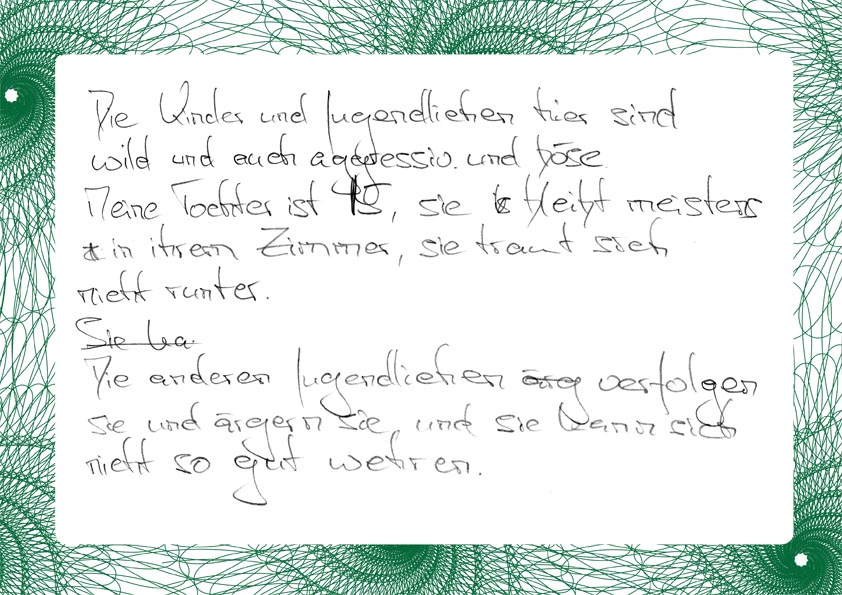 Die Kinder und Jugendlichen hier sind
wild und auch aggressiv. und böse
Meine Tochter ist 15, sie bleibt meisters
in ihrem Zimmer, sie traut sich
nicht runter.
Sie ka
Die anderen Jugendlichen ärg verfolgen
sie und ärgern sie, und sie kann sich
nicht so gut wehren.